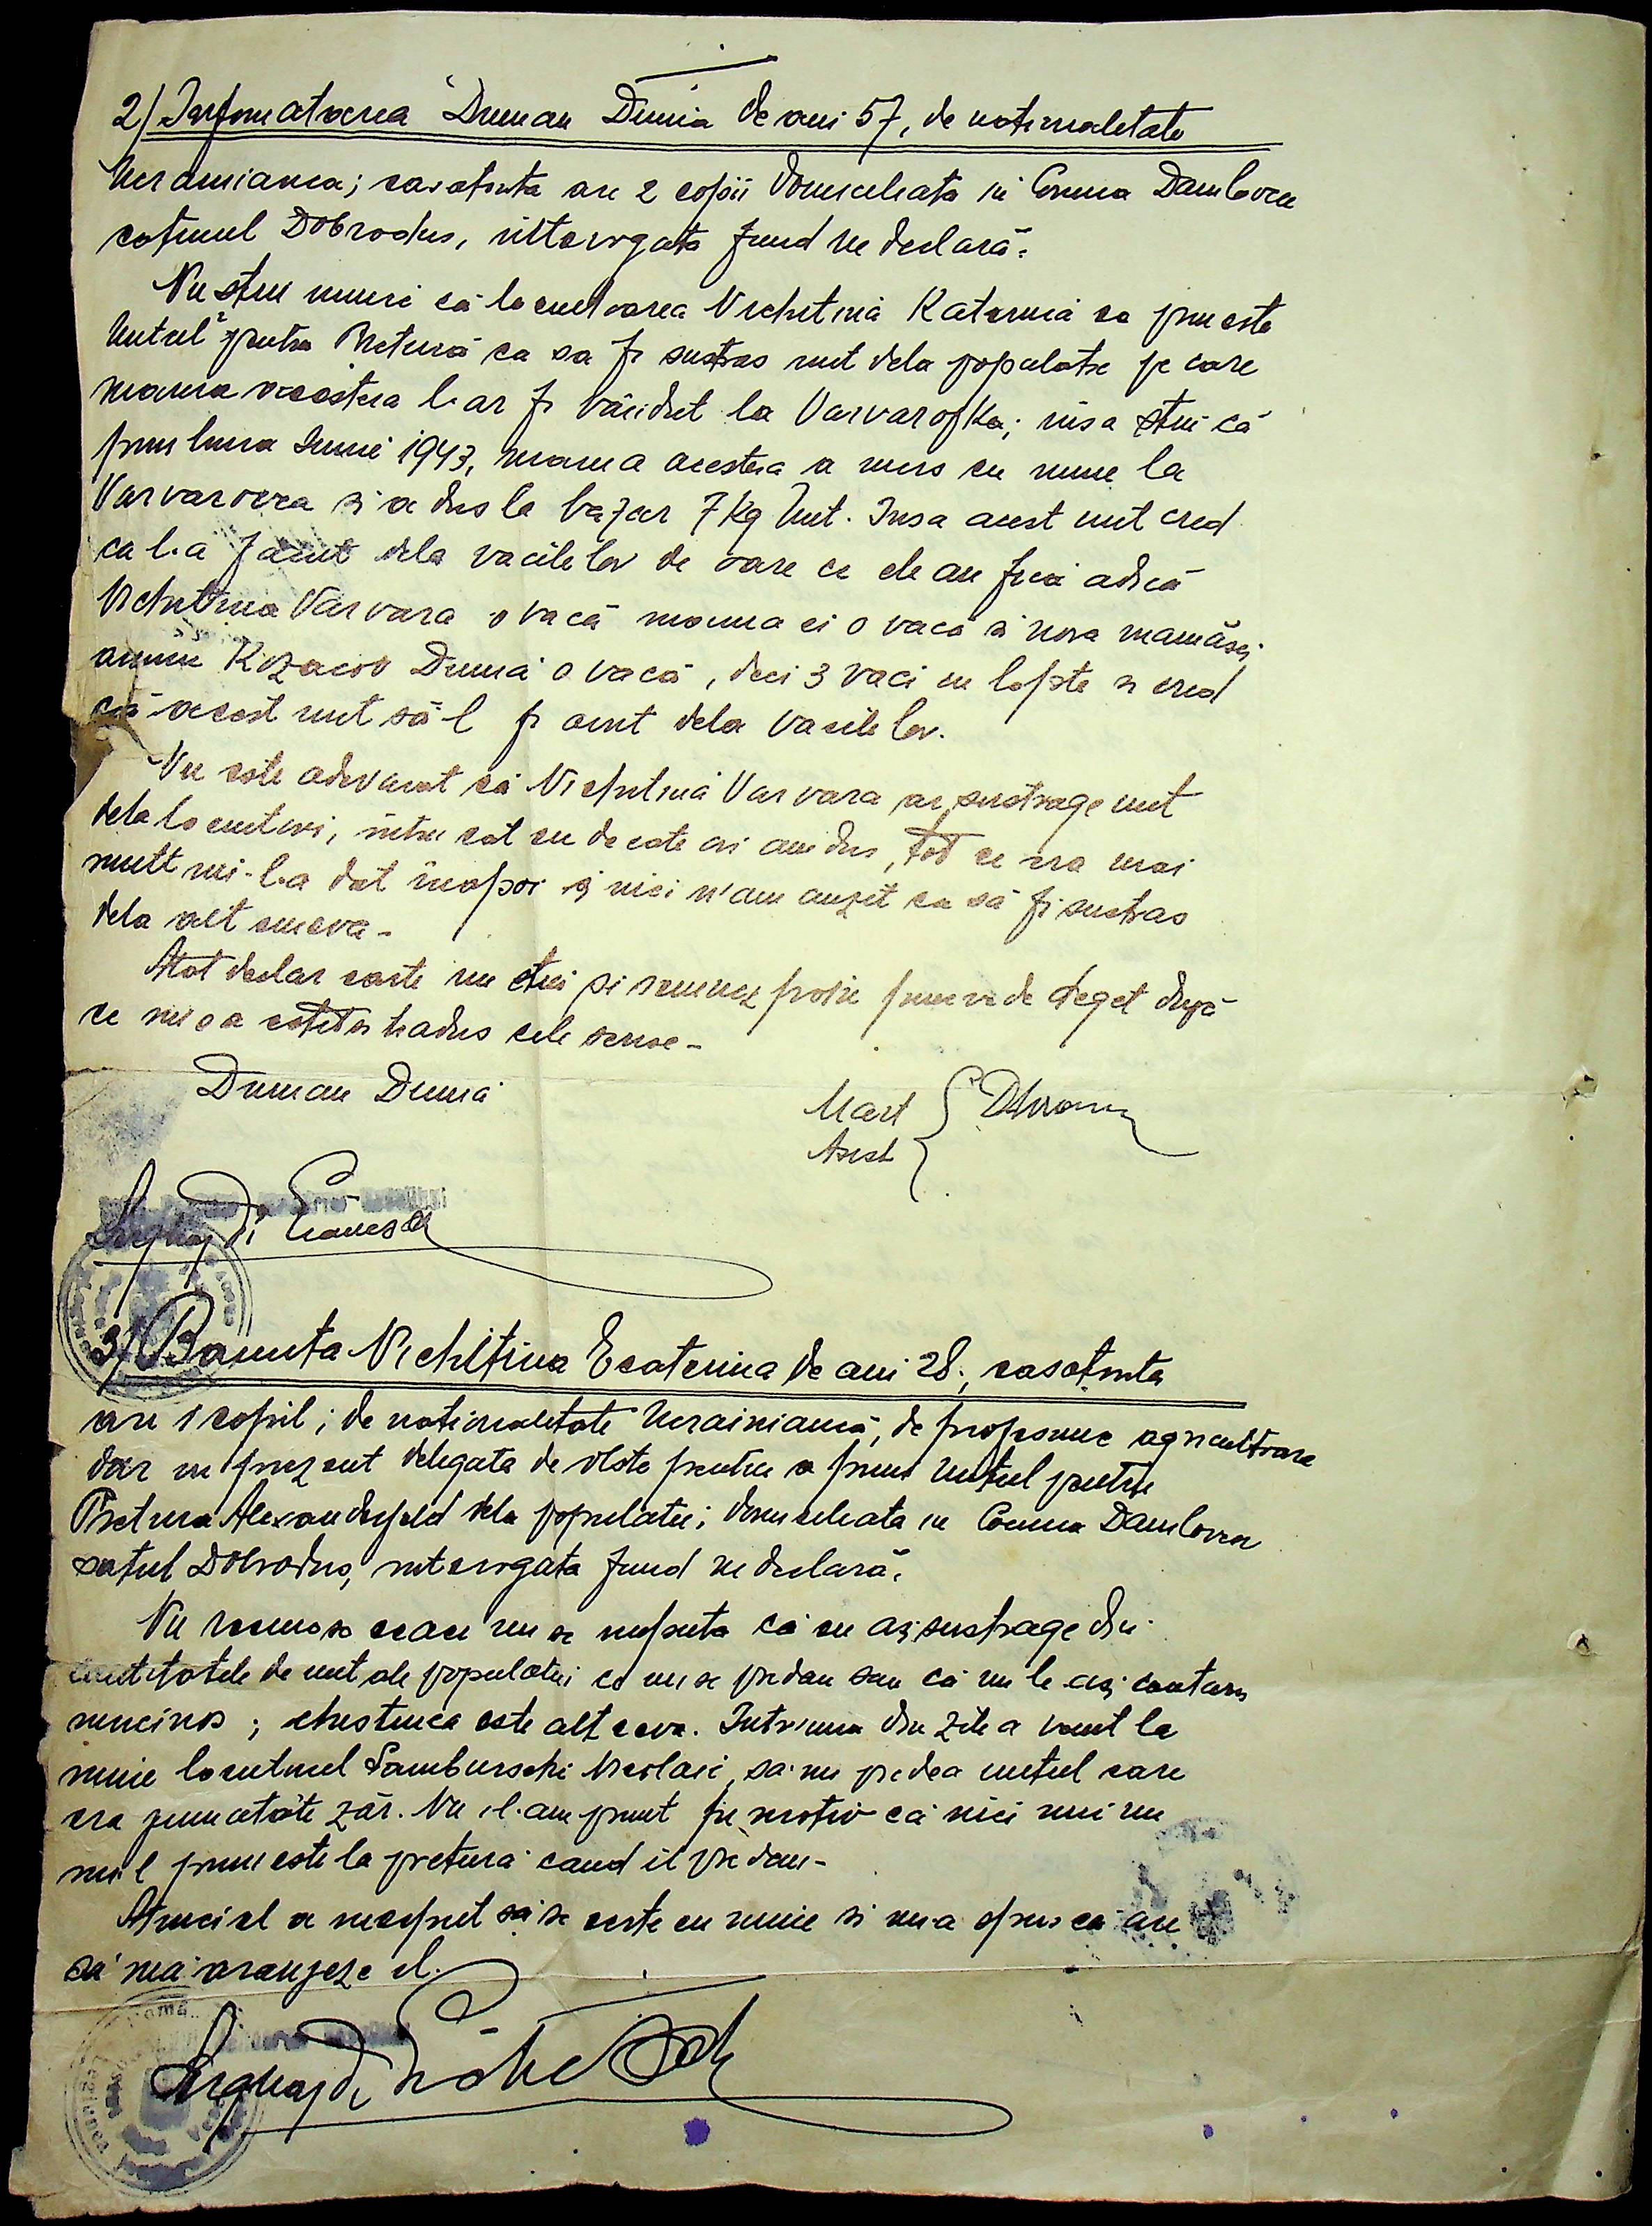 2/ Informatoarea Duman Dunia de ani 57, de nationalitate
Ucrainianca; casatorita are 2 copii domiciliata in Comuna Danilovca
catunul Dobrodus, interogata fiind ne declară:
Nu stiu nimic că locuitoarea Nichitina Katerina ca primeste
untul pentru Pretură ca sa fi sustras unt dela populatie pe care
mama acesteia l-ar fi vândut la Varvarofka; insa stiu că
prin luna Iunie 1943, mama acesteia a mers cu mine la
Varvarovca si a dus la bazar 7 Kg Unt. Insa acest unt cred
ca l-a facut dela vacile lor de oare ce ele au fiecare adică
Nichitina Varvara o vacă mama ei o vacă si nora mamăsei
anume Kozacov Dunia o vacă, deci 3 vaci cu lapte si cred
că acest unt să-l fi avut dela vacile lor.
Nu este adevarat că Nichitina Varvara ar sustrage unt
dela locuitori, intru cat eu de cate ori am dus, tot ce era mai
mult mi-l-a dat inapoi si nici n'am auzit ca să fi sustras
dela alt cineva -
Atat declar carte nu stiu si semnez prin punere de deget după
ce mi s'a citit si tradus cele scrise -
Duman Dunia
Mart
Asist
3/ Banuita Nichitina Ecaterina de ani 28, casatorita
are 1 copil; de nationalitate Ucrainiancă, de profesiune agricultoare
dar in prezent delegata de obste pentru a primi Untul pentru
Pretura Alexanderfeld dela populatie; domiciliata in Comuna Danilovca
satul Dobrodus, interogata fiind ne declară:
Nu recunosc ceace mi se imputa că eu as sustrage din
cantitatile de unt ale populatiei ce mi se predau sau că nu le as cantari
mincinos; chestiunea este alt ceva. Intr'una din zile a venit la
mine locuitorul Samburschi Nicolaie, sa-mi predea untul care
era jumatate zăr. Nu i l-am primit pe motiv că nici mie nu
mi-l primeste la pretură cand il predau -
Atunci el a inceput să se certe cu mine si mi-a spus că are
să mă aranjeze el.